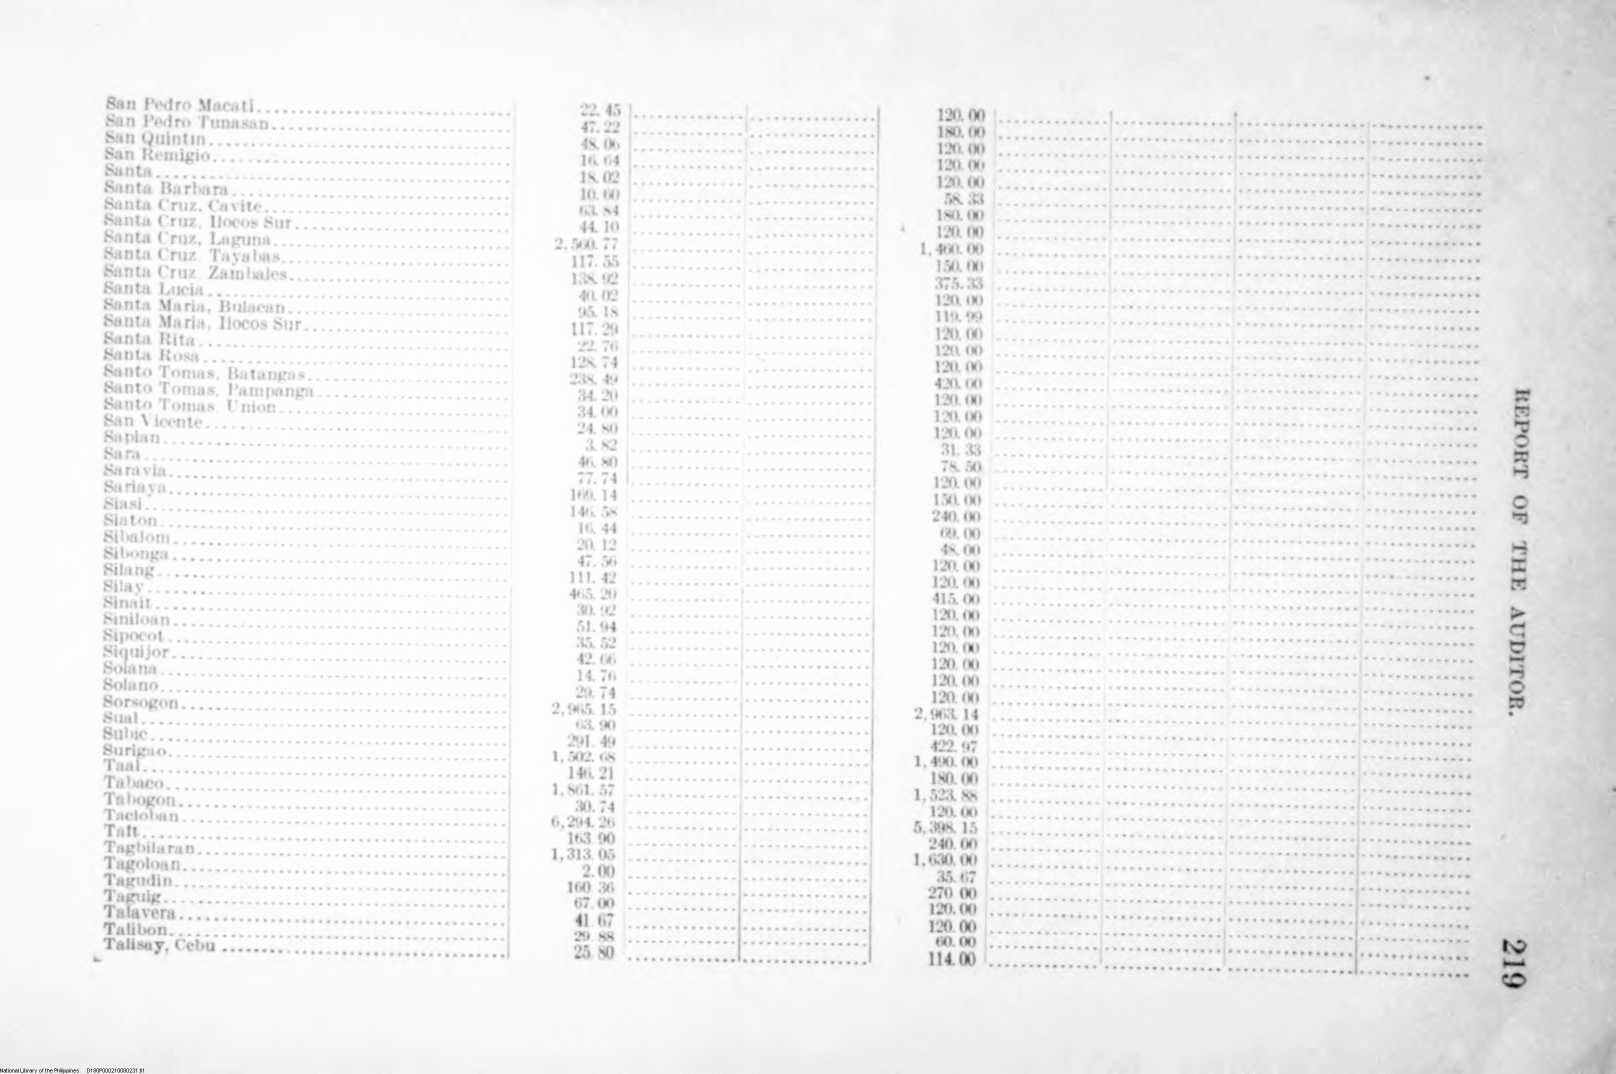 San Pedro Macati 22.45 120.00
San Pedro Tunasan 47.22 180.00
San Quintin 48.06 120.00
San Remigio 16.64 120.00
Santa 18.02 120.00
Santa Barbara 10.60 58.33
Santa Cruz, Cavite 63.84 180.00
Santa Cruz, Ilocos Sur 44.10 120.00
Santa Cruz, Laguna 2,560.77 1,460.00
Santa Cruz Tayabas 117.55 150.00
Santa Cruz Zambales 138.92 375.33
Santa Lucia 40.02 120.00
Santa Maria, Bulacan 95.18 119.99
Santa Maria, Ilocos Sur 117.29 120.00
Santa Rita 22.76 120.00
Santa Rosa 128.74 120.00
Santo Tomas, Batangas 238.49 420.00
Santo Tomas, Pampanga 34.20 120.00
Santo Tomas Union 34.00 120.00
San Vicente 24.80 120.00
Sapian 3.82 31.33
Sara 46.80 78.50
Saravia 77.74 120.00
Sariaya 169.14 150.00
Siasi 146.58 240.00
Siaton 16.44 69.00
Sibalom 20.12 48.00
Sibonga 47.56 120.00
Silang 111.42 120.00
Silay 465.20 415.00
Sinait 30.92 120.00
Siniloan 51.94 120.00
Sipocot 35.52 120.00
Siquijor 42.66 120.00
Solana 14.76 120.00
Solano 29.74 120.00
Sorsogon 2,965.15 2,963.14
Sual 63.90 120.00
Subic 291.49 422.97
Surigao 1,502.68 1,490.00
Taal 146.21 180.00
Tabaco 1,861.57 1,523.88
Tabogon 30.74 120.00
Tacloban 6,294.26 5,398.15
Taft 163.90 240.00
Tagbilaran 1,313.05 1,630.00
Tagoloan 2.00 35.67
Tagudin 160 36 270 00
Taguig 67.00 120.00
Talavera 41 67 120.00
Talibon 29 88 60.00
Talisay, Cebu 25 80 114.00
REPORT OF THE AUDITOR.
219
National Library of the Philippines